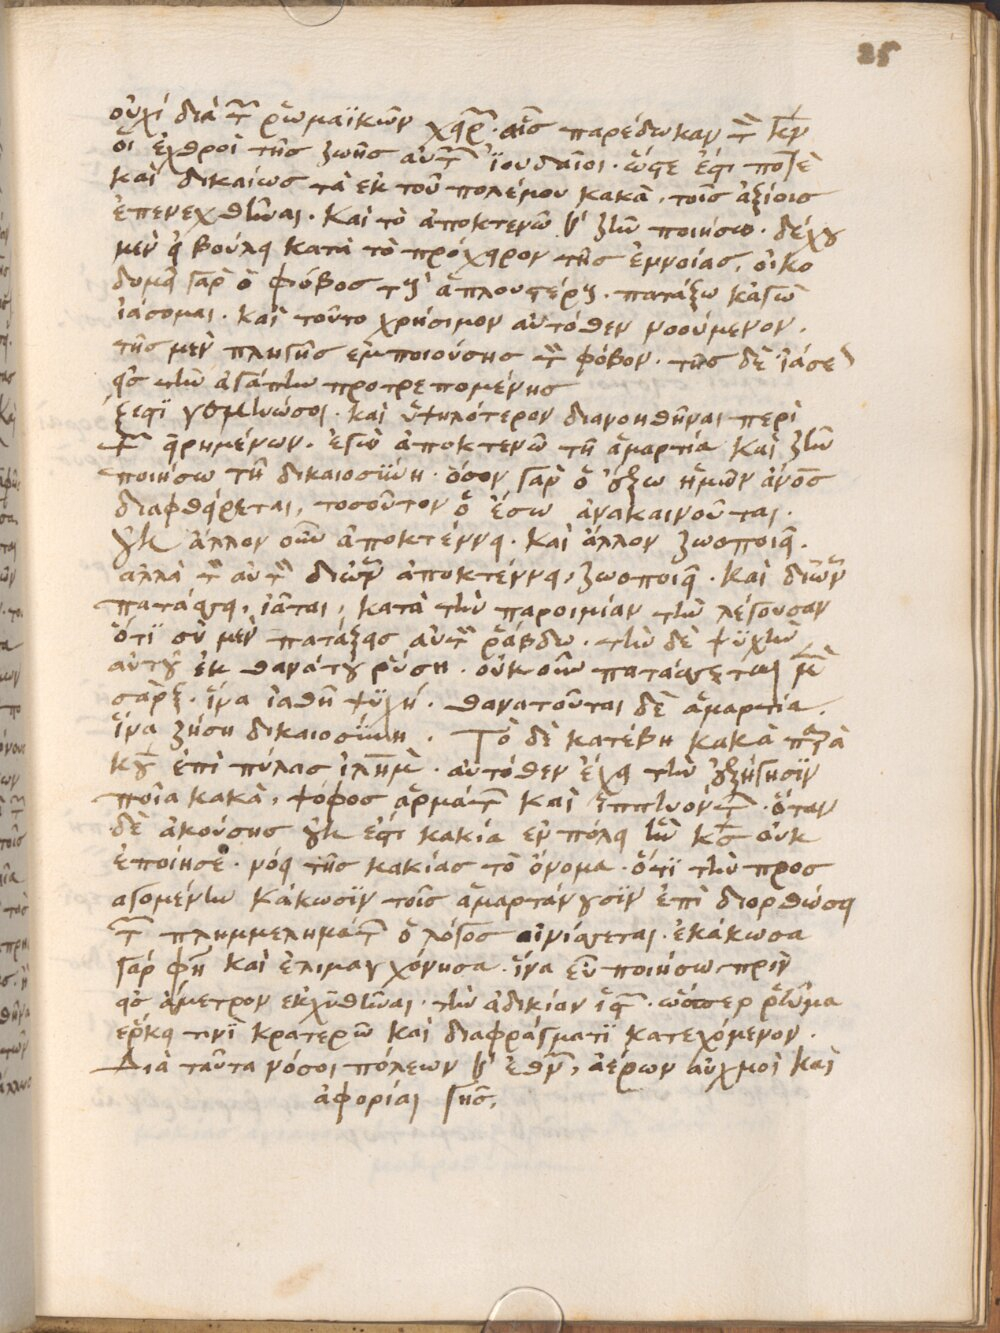 25
οὐχὶ διὰ τῶν ῥωμαϊκῶν χειρῶν. αἷς παρέδωκαν τὸν κύριον
οἱ ἐχθροὶ τῆς ζωῆς αὐτῶν ἰουδαῖοι. ὥστε ἐστι
καὶ δικαίως τὰ ἐκ τοῦ πολέμου κακὰ, τοῖς ἀξίοις
ἐπενεχθῆναι. καὶ τὸ ἀποκτενῶ καὶ ζῆν ποιήσω. δέχου
μὲν εἰ βούλει κατὰ τὸ πρόχειρον τῆς ἐννοίας. οἰκο
δομεῖ γὰρ ὁ φόβος τοὺς ἁπλουστέρους. πατάξω κἀγὼ
ἰάσομαι. καὶ τοῦτο χρήσιμον αὐτόθεν νοούμενον.
τῆς μὲν πληγῆς ἐμποιούσης τὸν φόβον. τῆς δὲ ἰάσεως
εἰς τὴν ἀγάπην προτρεπομένης
ἔξεστί καὶ ὑψηλότερον διανοηθῆναι περὶ
τῶν εἰρημένων. ἐγὼ ἀποκτενῶ τῇ ἁμαρτία καὶ ζῆν
ποιήσω τῇ δικαιοσύνη. ὅσον γὰρ ὁ ἔξω ἡμῶν ἄνθρωπος
διαφθείρεται, τοσοῦτον ὁ ἔσω ἀνακαινοῦται.
οὐκ ἄλλον οὖν ἀποκτέννει. καὶ ἄλλον ζωοποιεῖ.
ἀλλὰ τὸν αὐτὸν δι' ὧν ἀποκτέννει, ζωοποιεῖ. καὶ δι' ὧν
πατάσσει, ἰᾶται, κατὰ τὴν παροιμίαν τὴν λέγουσαν
ὅτι σὺ μὲν πατάξεις αὐτὸν ῥάβδω. τὴν δὲ ψυχὴν
αὐτοῦ ἐκ θανάτου ῥύση. οὐκοῦν πατάσσεται μὲν
σάρξ. ἵνα ἰαθῆ ψυχή. θανατοῦται δὲ ἁμαρτία.
ἵνα ζήση δικαιοσύνη. Τὸ δὲ κατέβη κακὰ παρὰ
κυρίου ἐπὶ πύλας ἱλημ. αὐτόθεν ἔχει τὴν ἐξήγησιν
ποῖα κακὰ, ψόφος ἁρμάτων καὶ ἱππευόντων. ὅταν
δὲ ἀκούσης οὐκ ἐστι κακία ἐν πόλει ἣν κύριος οὐκ
ἐποίησε. νόει τῆς κακίας τὸ ὄνομα. ὅτι τὴν προσ
αγομένην κάκωσιν τοῖς ἁμαρτάνουσιν ἐπὶ διορθώσει
τῶν πλημμελημάτων ὁ λόγος αἰνίσσεται. ἐκάκωσα
γάρ φησὶ καὶ ἐλιμαγχόνησα. ἵνα εὖ ποιήσω πρὶν
εἰς ἄμετρον ἐκχυθῆναι. τὴν ἀδικίαν ἱστῶν. ὥσπερ ῥεῦμα
ἕρκει τινὶ κρατερῶ καὶ διαφράγματι κατεχόμενον.
Διὰ ταῦτα νόσοι πόλεων καὶ ἐθνῶν, ἀέρων αὐχμοὶ καὶ
ἀφορίαι γῆς,